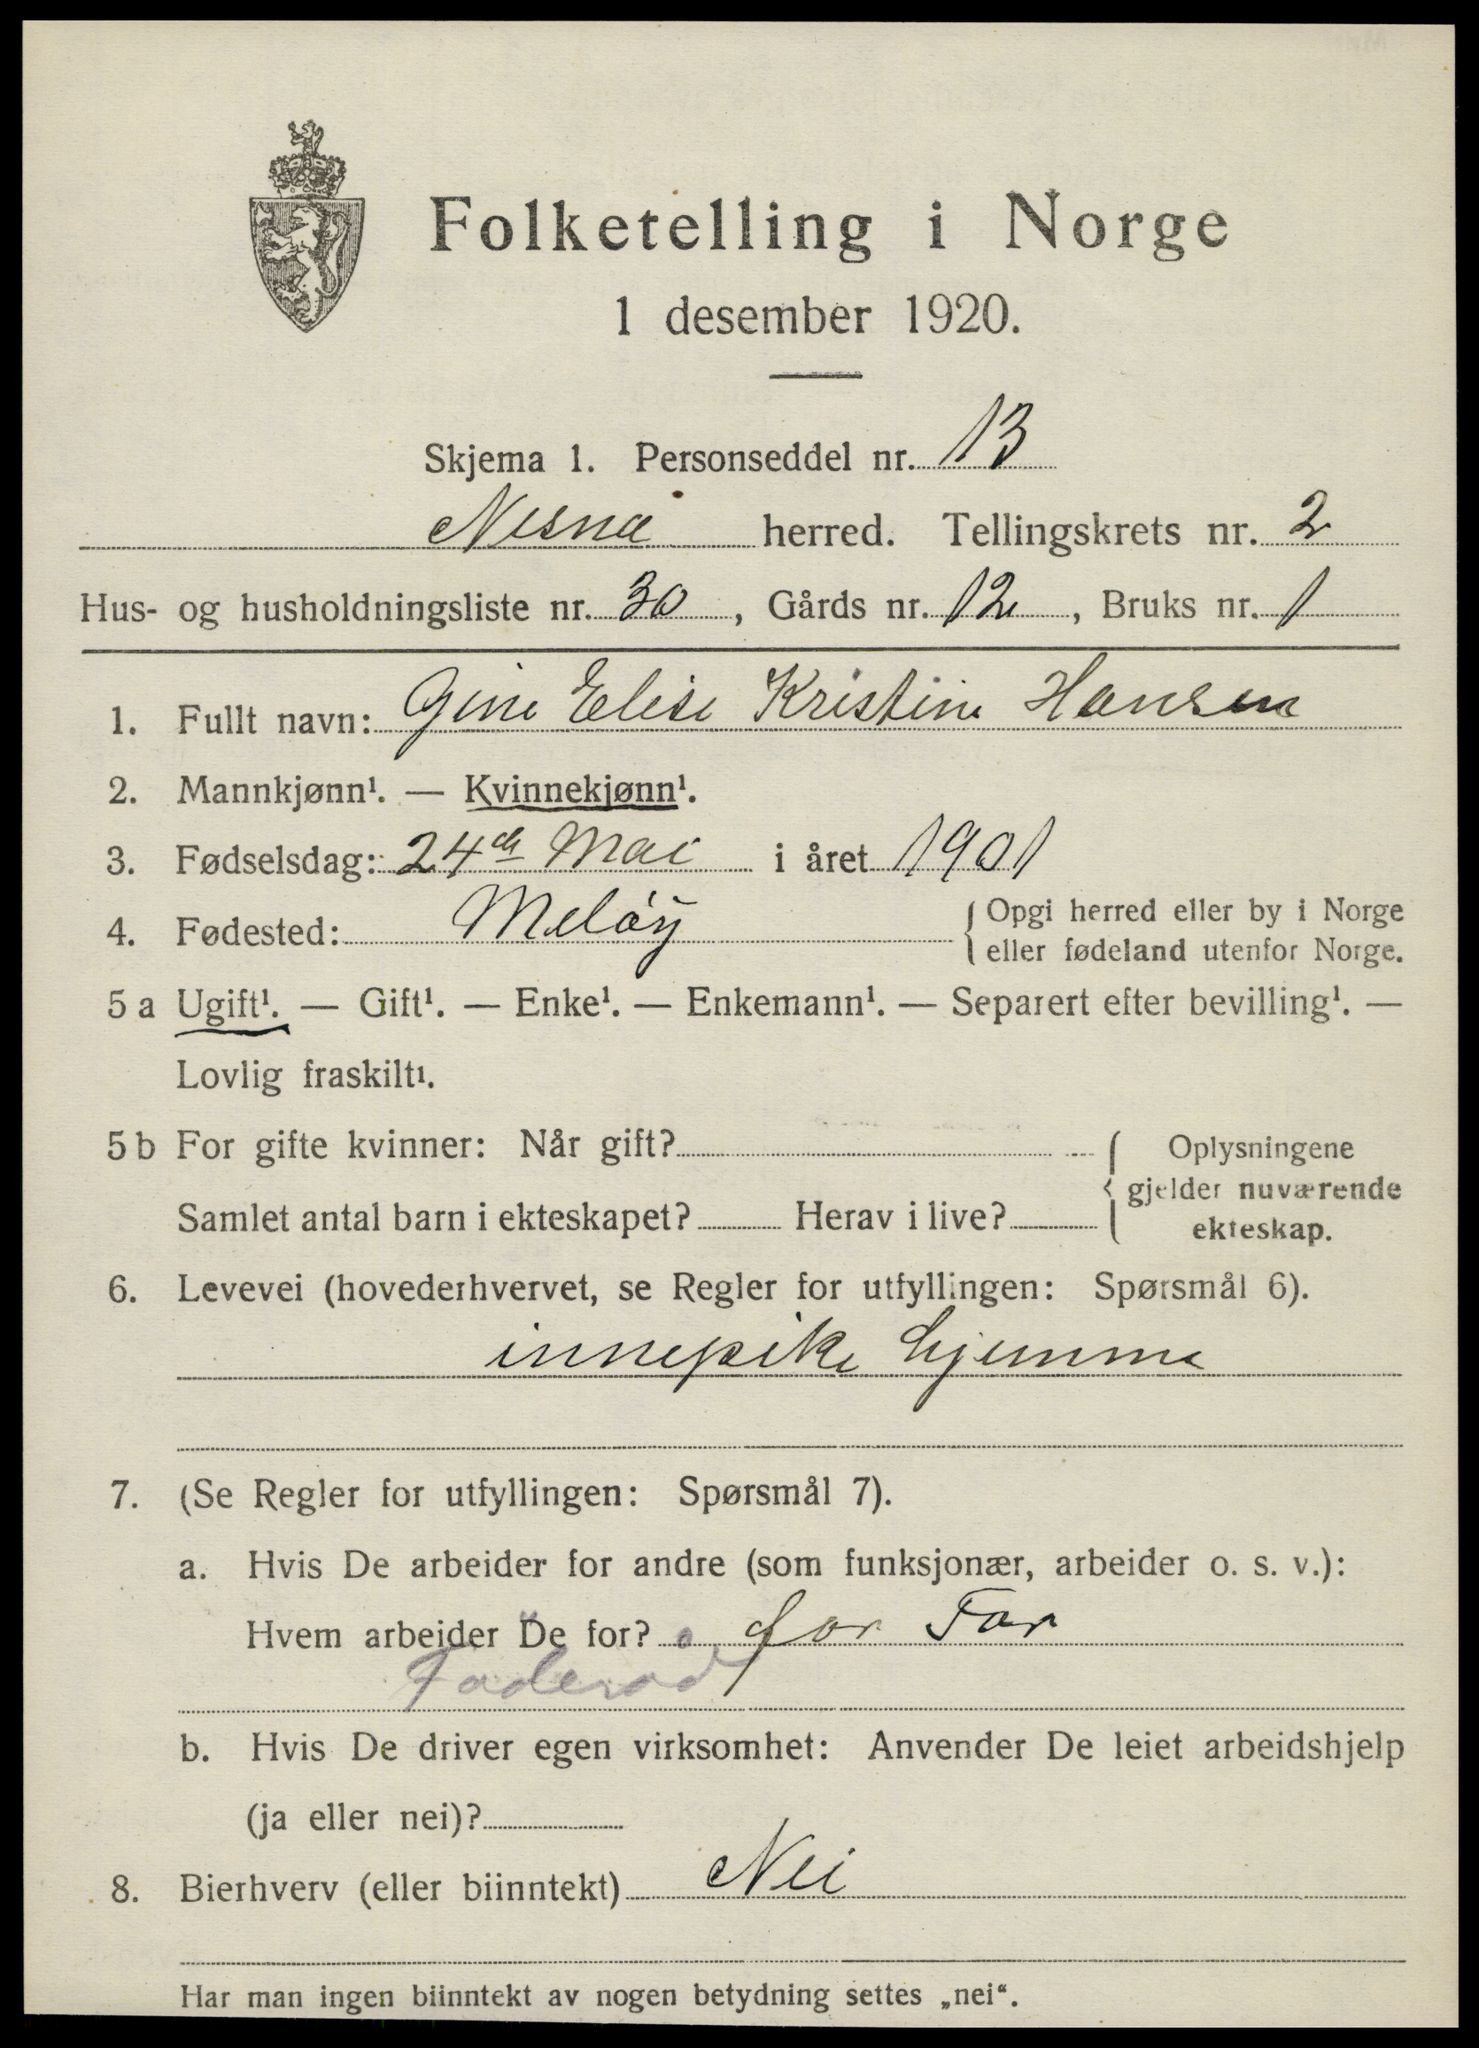 Folketelling i Norge
1 desember 1920.
Skjema 1. Personseddel nr. 13
Nesna herred. Tellingskrets nr. 2
Hus- og husholdningsliste nr. 30, Gårds nr. 12, Bruks nr. 1
1. Fullt navn: Gine Elise Kristine Hansen
2. Mannkjønn¹. — Kvinnekjønn¹.
3. Fødselsdag: 24de Mai i året 1901
4. Fødested: Meløy { Opgi herred eller by i Norge
eller fødeland utenfor Norge.
5 a Ugift¹. — Gift¹. — Enke¹. — Enkemann¹. — Separert efter bevilling¹. —
Lovlig fraskilt¹.
5 b For gifte kvinner: Når gift? { Oplysningene
gjelder nuværende
Samlet antal barn i ekteskapet? Herav i live? ekteskap.
6. Levevei (hovederhvervet, se Regler for utfyllingen: Spørsmål 6).
innepike hjemme
7. (Se Regler for utfyllingen: Spørsmål 7).
a. Hvis De arbeider for andre (som funksjonær, arbeider o. s. v.):
Hvem arbeider De for? for Far
Føderåd
b. Hvis De driver egen virksomhet: Anvender De leiet arbeidshjelp
(ja eller nei)?
8. Bierhverv (eller biinntekt) Nei
Har man ingen biinntekt av nogen betydning settes „nei“.